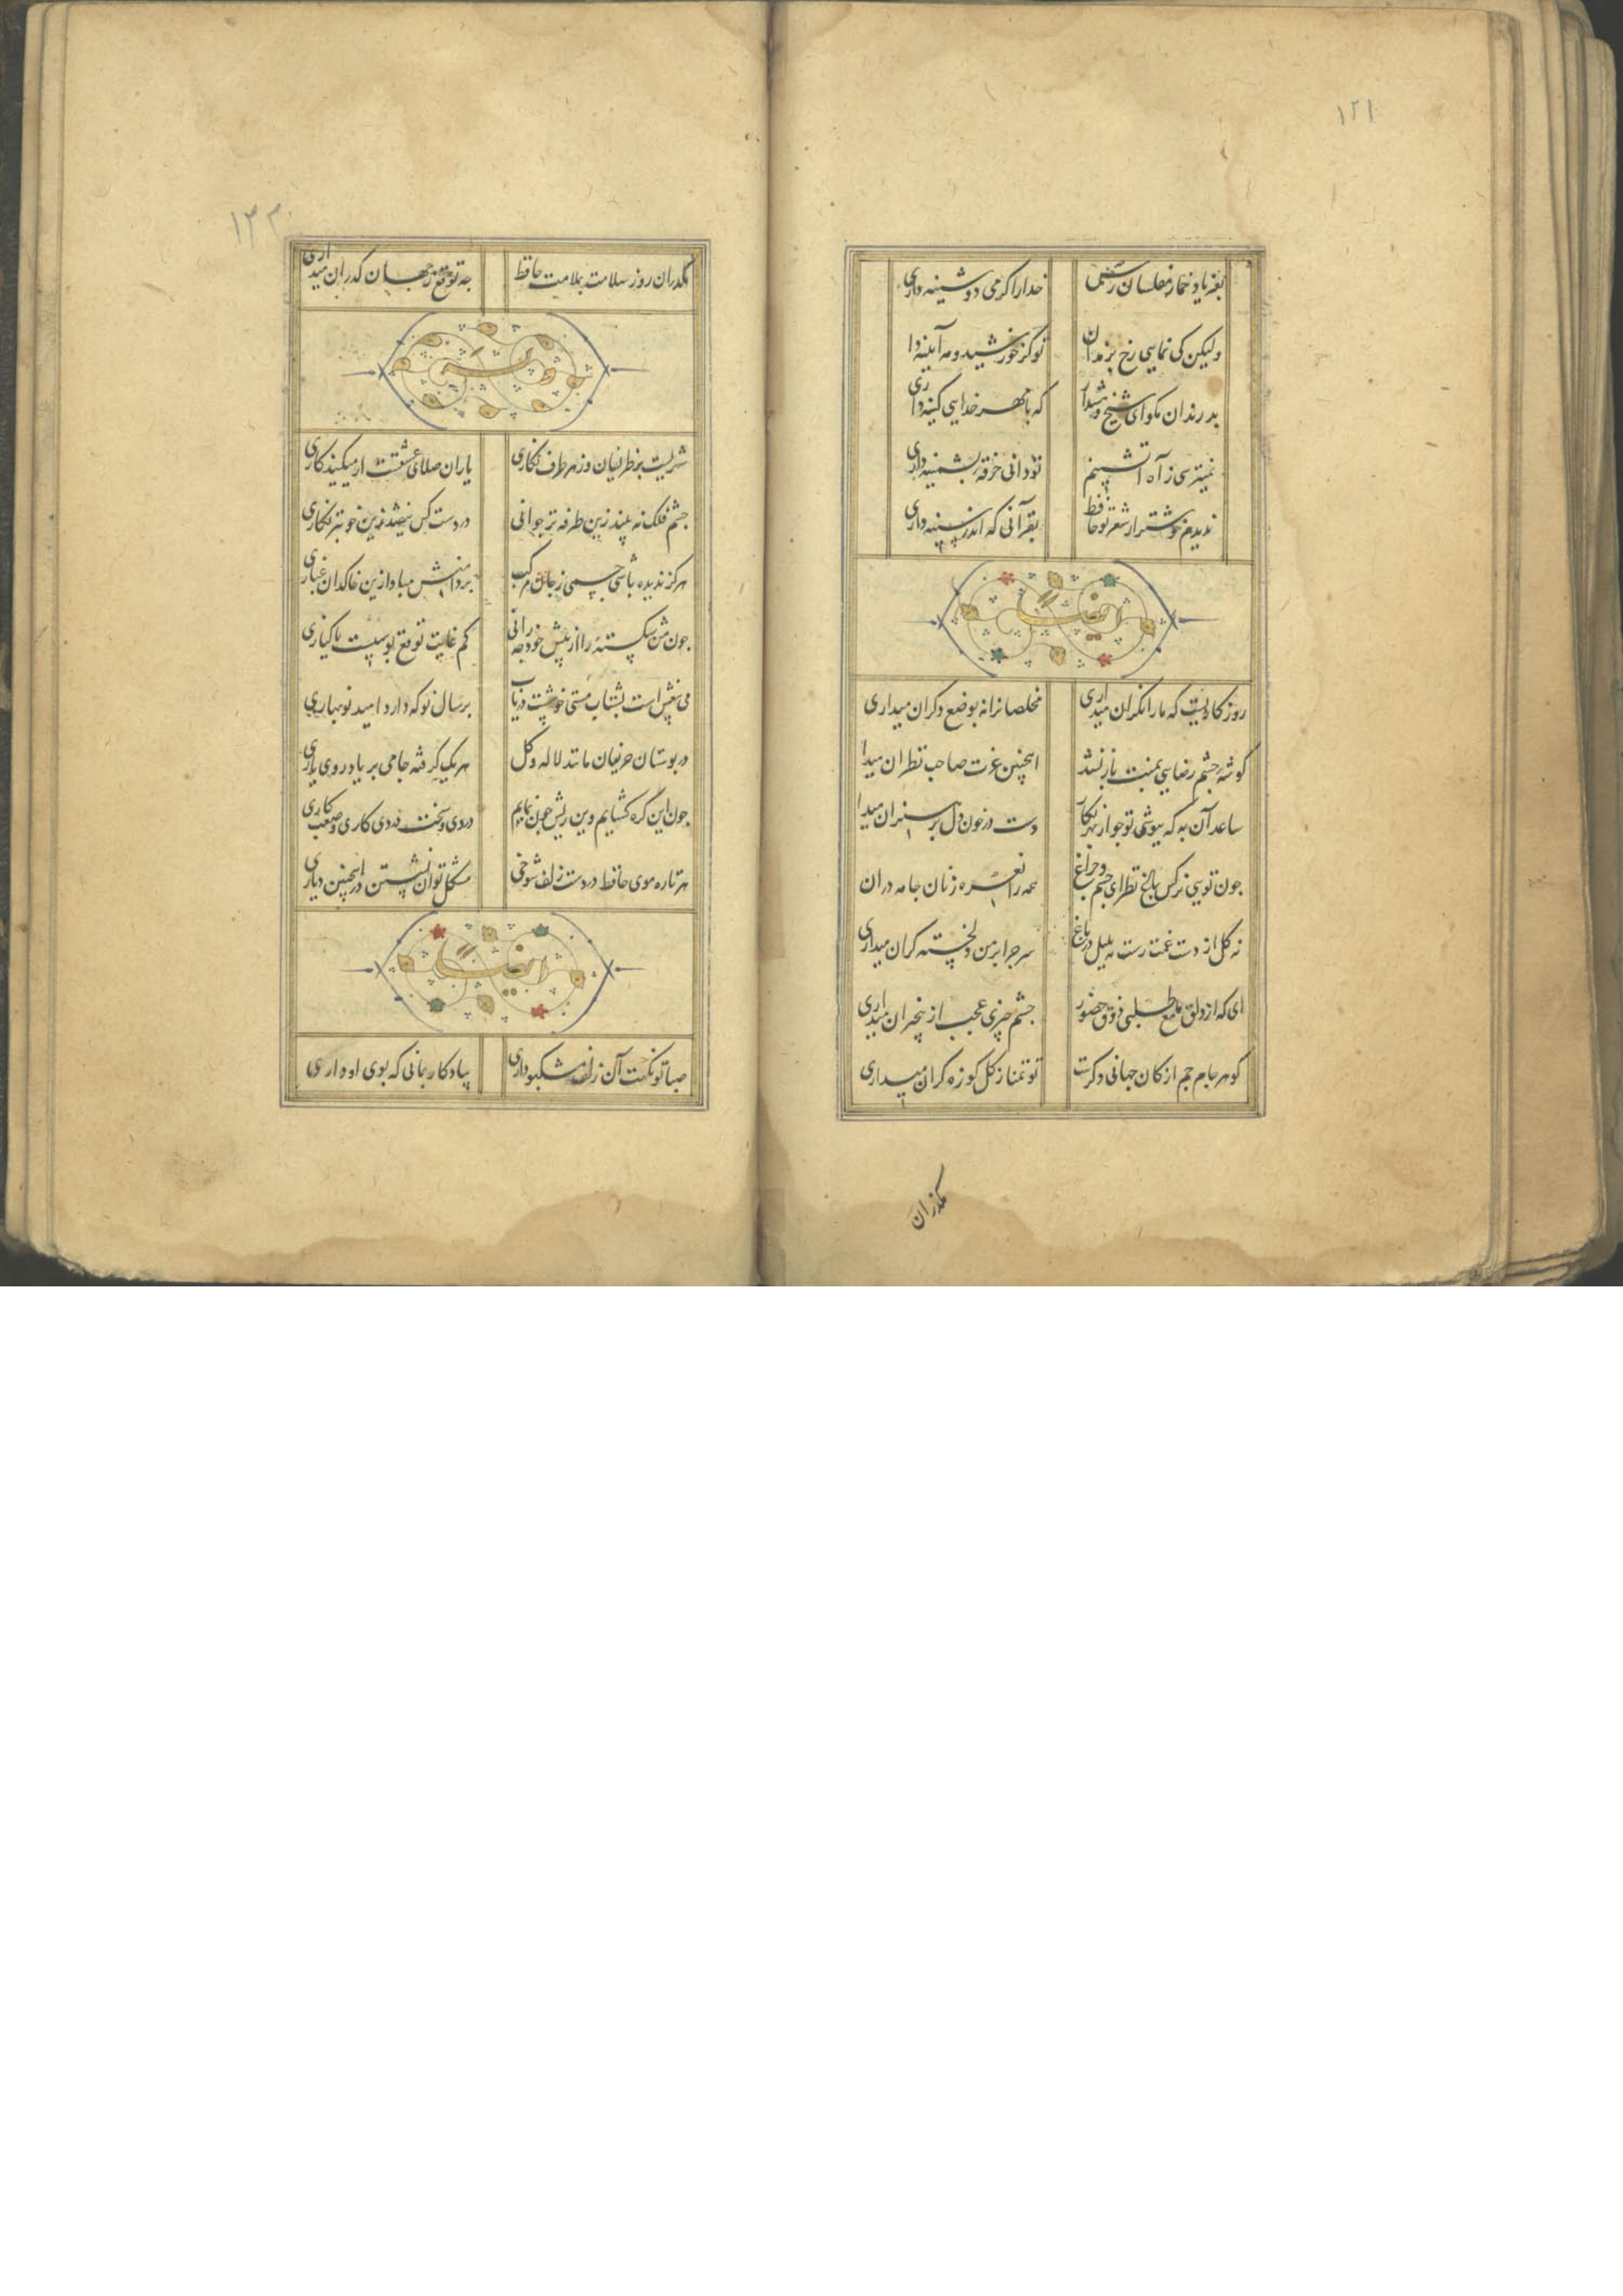 ۱۲۱
بفریاد خمار مفلسان رس خدا را گر می دوشینه داری
ولیکن کی نمایی رخ برندان تو کز خورشید و مه آیینه داری
بد رندان مگو ای شیخ و هشدار که با مهر خدایی کینه داری
نمیترسی ز آه آتشینم تو دانی خرقه پشمینه داری
ندیدم خوشتر از شعر تو حافظ بقرآنی که اندر سینه داری
ایضا
روزگاریست که ما را نگران میداری مخلصانرا نه بوضع دگران میداری
گوشه چشم رضایی بمنت باز نشد اینچنین عزت صاحب نظران میدا
ساعد آن به که بپوشی تو جو از بهر نگار دست در خون دل پر هنران میدا
جون تویی نرکس باغ نظر ای جشم و جراغ همه را نعره زنان جامه دران
نه گل از دست غمت رست نه بلبل در باغ سر جرا بر من دلخسته گران میداری
ای که از دلق ملمع طلبی ذوق حضور جشم خیری عجب از بیخبران میداری
گوهر جام جم از کان جهانی دگرست تو تمنا ز گل کوزه گران میداری
مگذران
۱۲۲
مگذران روز سلامت بملامت حافظ جه توقع ز جهان گذران میداری
شهریست پر ظریفان وز هر طرف نگاری یاران صلای عشقست ار میکنید کاری
جشم فلک نه بیند زین طرفه تر جوانی در دست کس نیفتد زین خوبتر نگاری
هرگز ندیده باشی جسمی ز جان مرکب بر دامنش مبادا زین خاکدان غباری
جون من شکسته را از پیش خود جه رانی کم غایت توقع بوسیست یا کناری
می بیغش است بشتاب وقتی خوشست دریاب بر سال نو که دارد امید نوبهاری
در بوستان حریفان مانند لاله و گل هر یک گرفته جامی بر یاد روی یاری
جون این گره گشایم وین ریش جون نمایم دردی و سخت دردی کاری و صعب کاری
هر تاره موی حافظ در دست زلف شوخی مشکل توان نشستن در اینچنین دیاری
ایضا
صبا تو نکهت آن زلف مشکبو داری بیادگار بمانی که بوی او داری